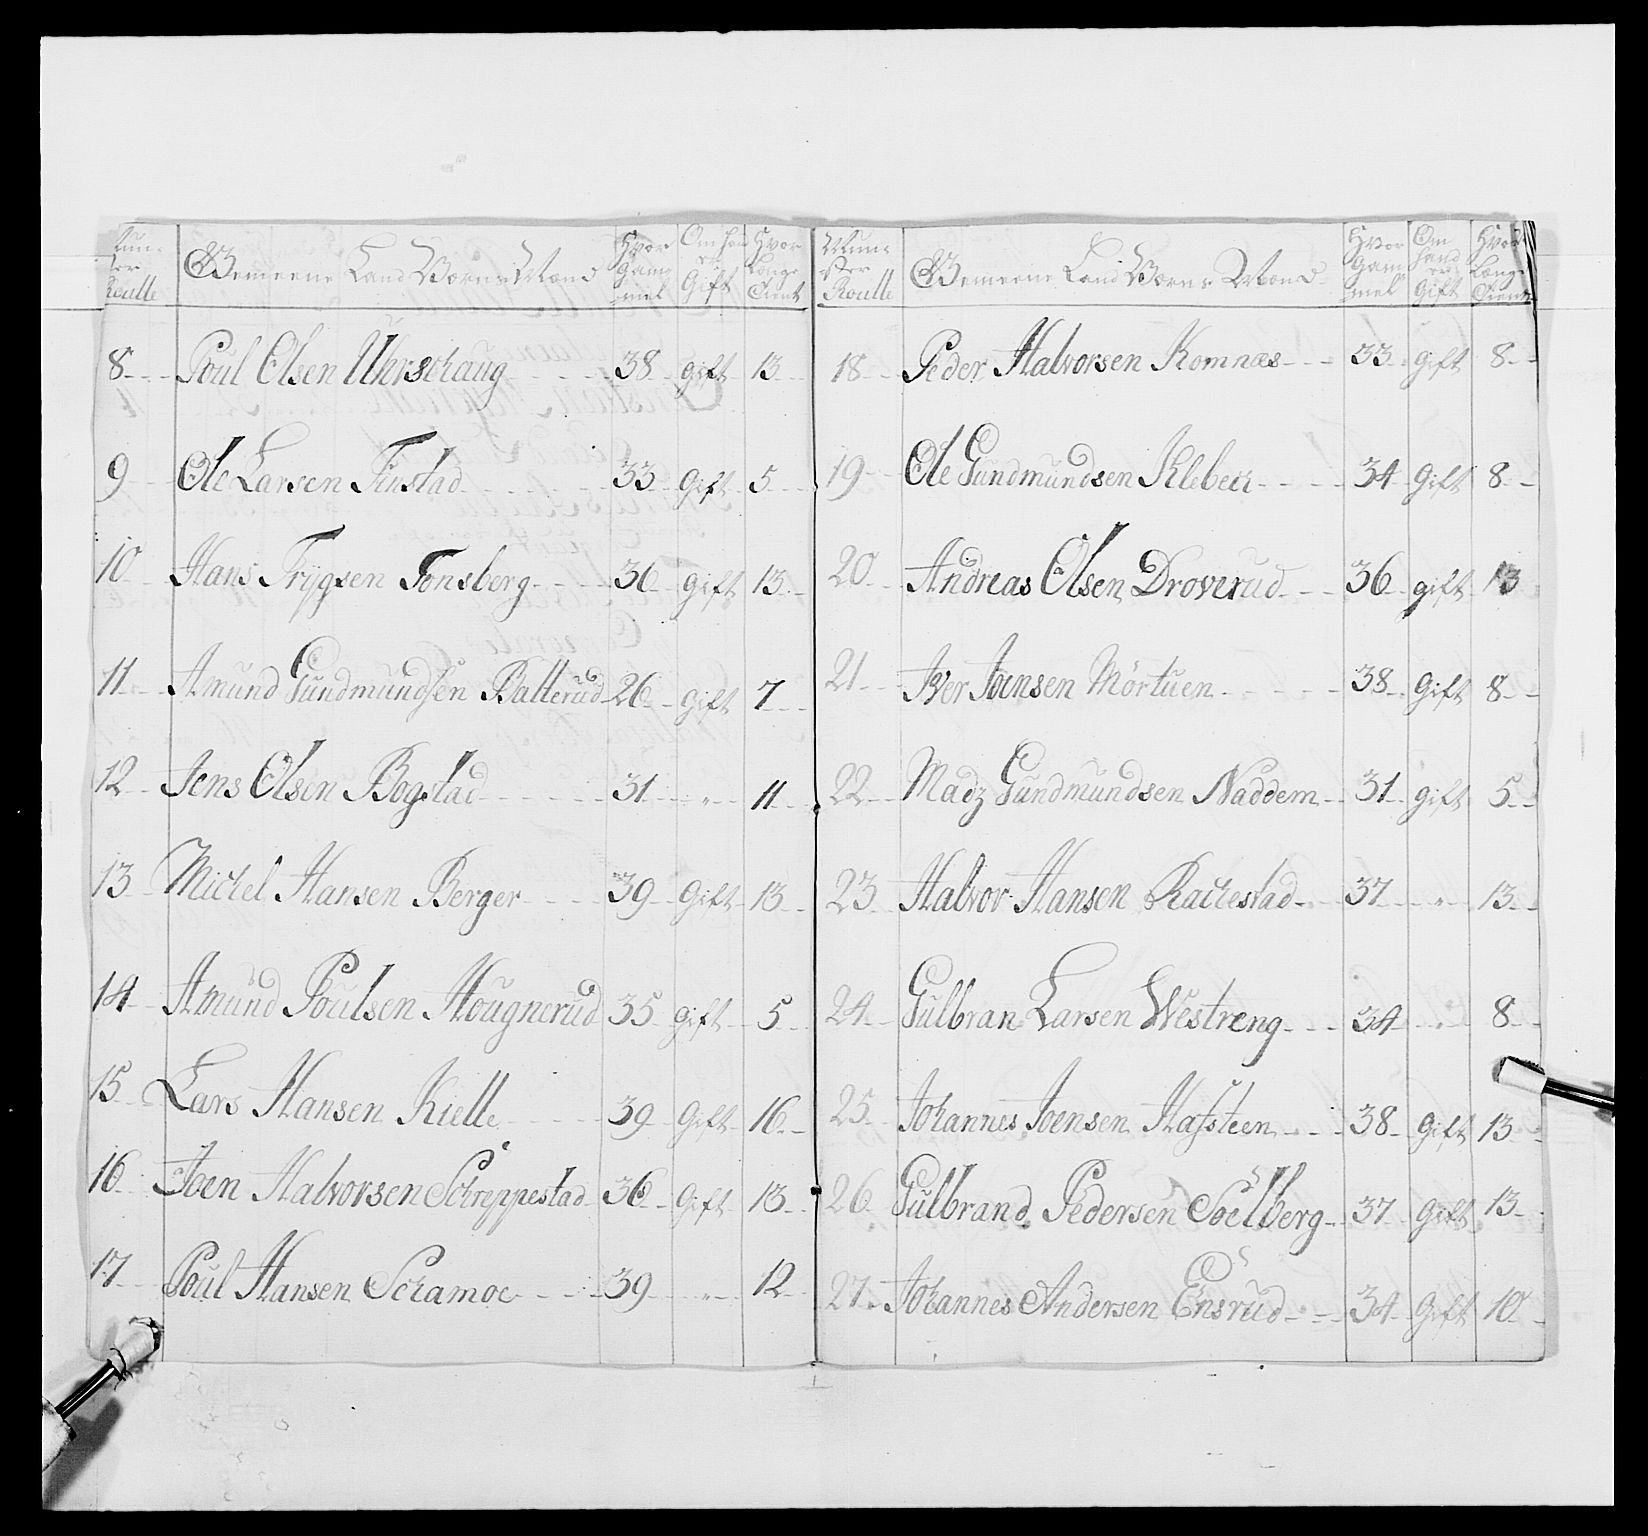 Mun-
ster
Roulle
Gemeene Land Værns Mænd
Hvor
Gam
mel
Om hand
er
Gift
Hvor
Længe
Tient
8 Poul Olsen Uhrschaug 38 gift 13
9 Ole Larsen Finstad 33 Gift 5
10 Hans Trÿgsen Tonsberg 36 gift 13
11 Amund Gundmundsen Balterud 26 Gift 7
12 Jens Olsen Bogstad 31 " 11
13 Michel Hansen Berger 39 Gift 13
14 Amund Poulsen Hougnerud 35 gift 5
15 Lars Hansen Kielle 39 Gift 16
16 Joen Halvorsen Schreppestad 36 Gift 13
17 Poul Hansen Schamoe 39 " 12
Mun-
ster
Roulle
Gemeene Land Værns Mænd
Hvor
Gam
mel
Om
hand
er
Gift
Hvor
Læng
Tient
18 Peder Halvorsen Komnæs 33 gift 8
19 Ole Gundmundsen Kleben 34 Gift 8
20 Andreas Olsen Droverud 36 gift 13
21 Iver Joensen Mörtuen 38 Gift 8
22 Madz Gundmundsen Naddem 31 gift 5
23 Halvor Hansen Rachestad 37 " 13
24 Gulbran Larsen Westreng 34 " 8
25 Johannes Joensen Hafsteen 38 Gift 13
26 Gulbrand Pedersen Soelberg 37 Gift 13
27 Johannes Andersen Ensrud 34 Gift 10